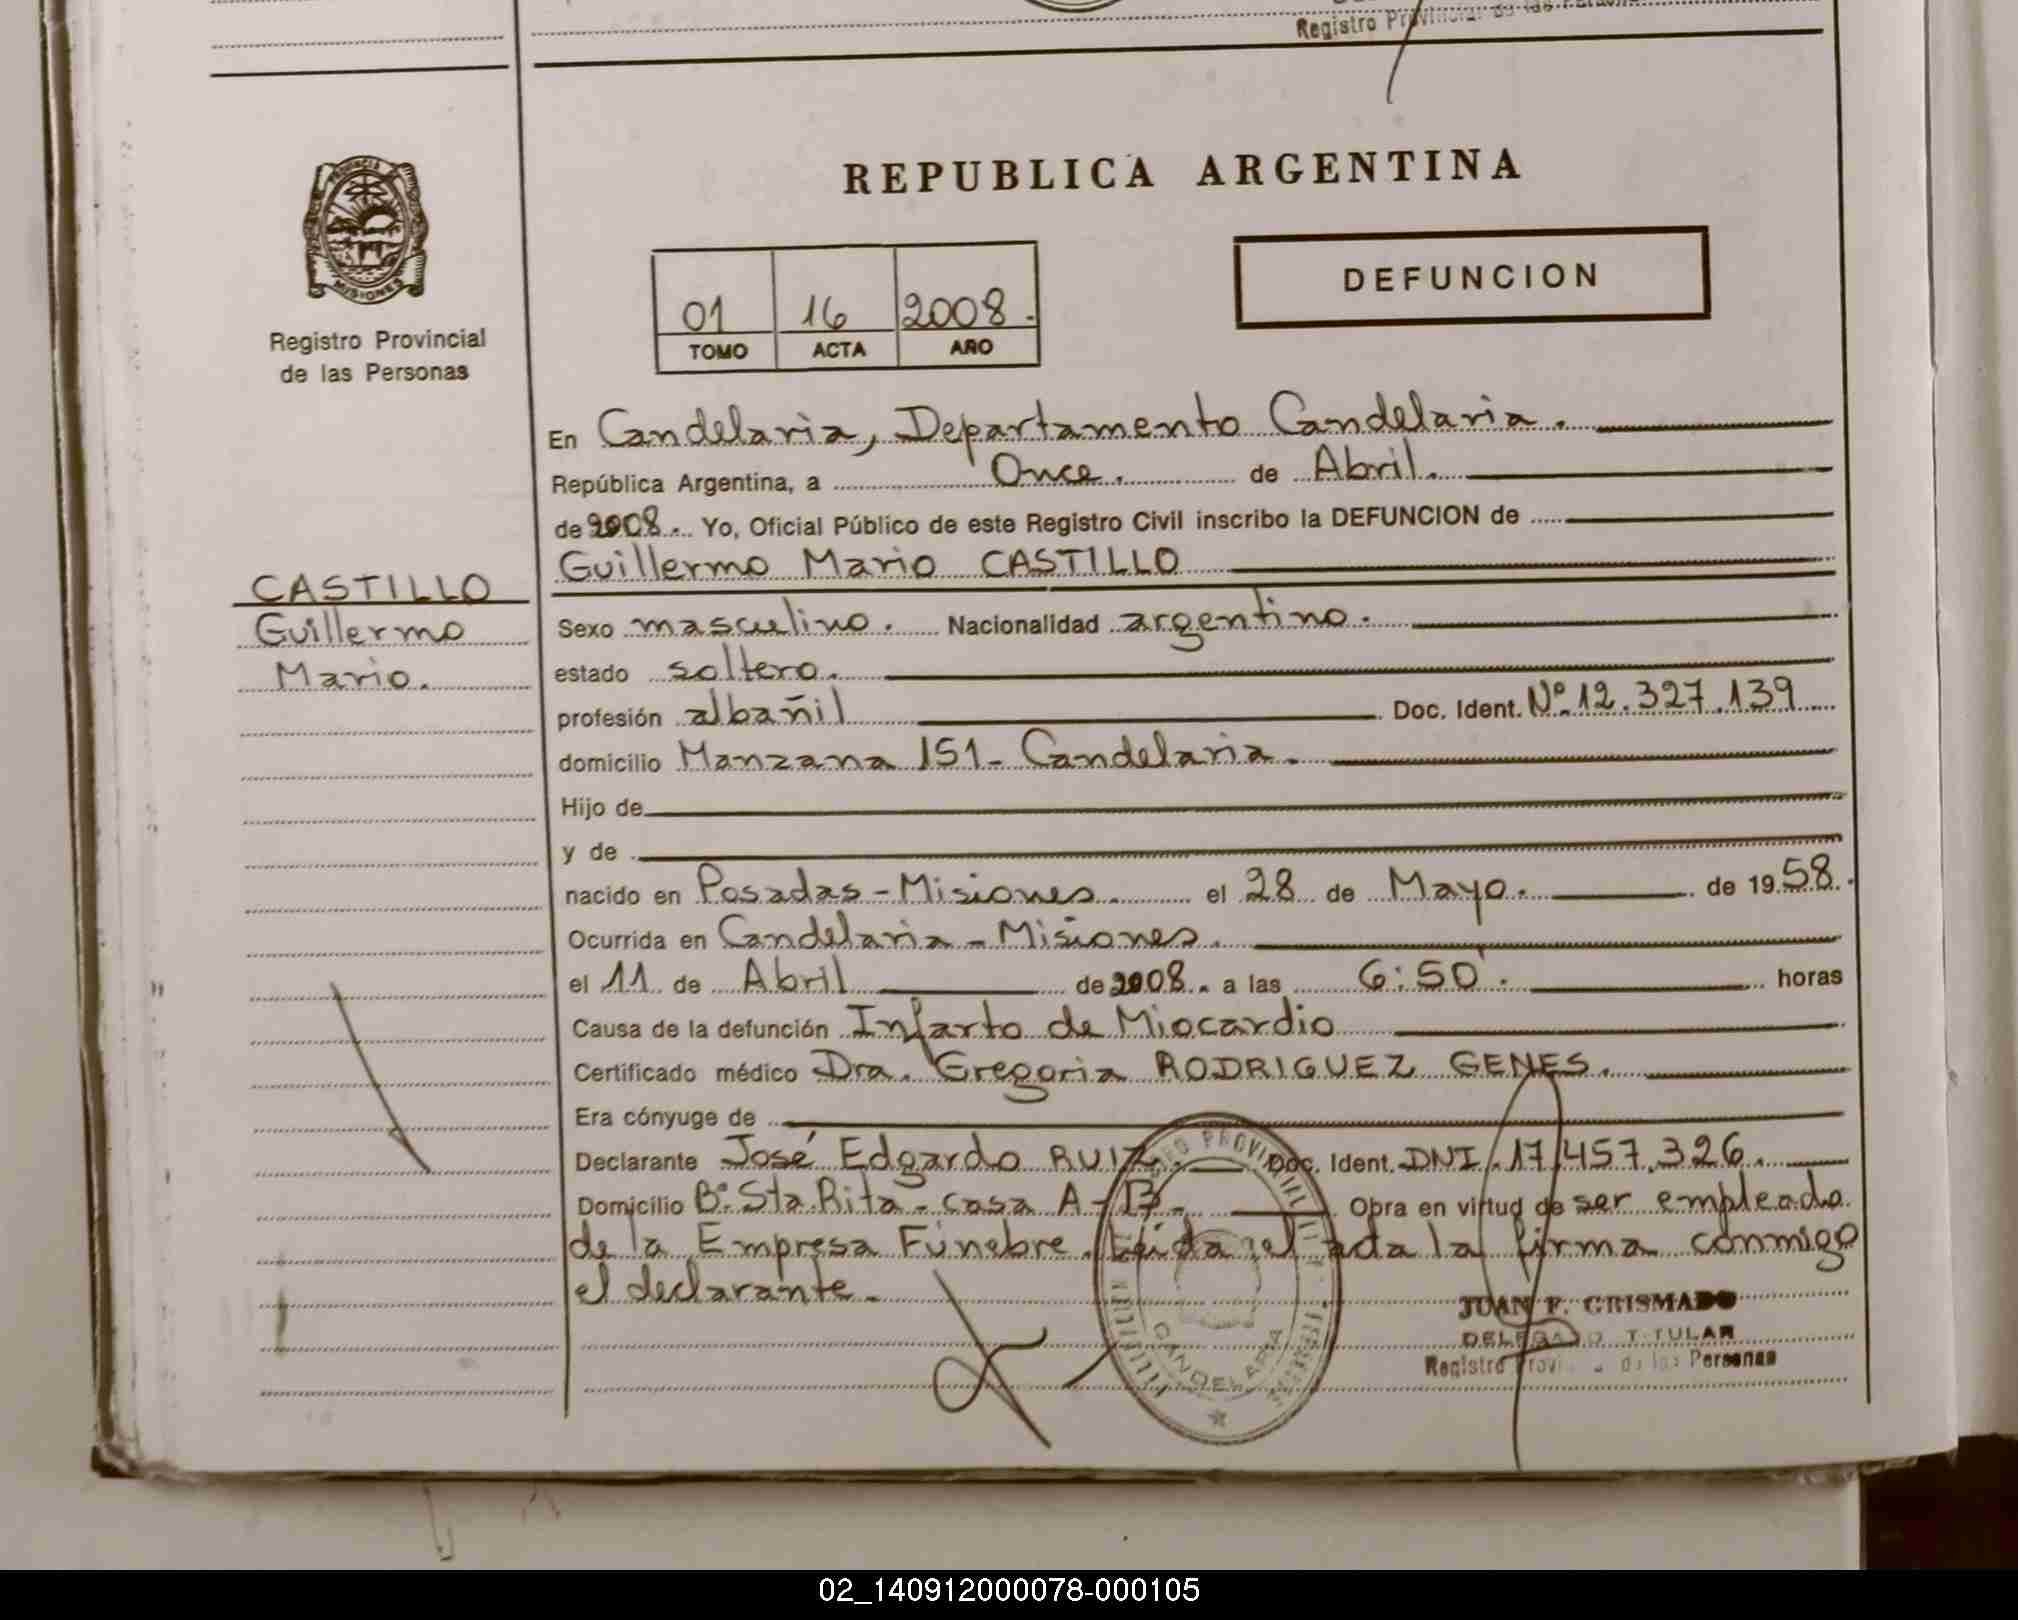 Registro Provincial de las Personas
REPUBLICA ARGENTINA
PROVINCIA
MISIONES
Registro Provincial
de las Personas
01 16 2008.
TOMO ACTA AÑO
DEFUNCION
En Candelaria, Departamento Candelaria.
República Argentina, a Once. de Abril.
de 2008. Yo, Oficial Público de este Registro Civil inscribo la DEFUNCION de
Guillermo Mario CASTILLO
CASTILLO
Guillermo
Mario.
Sexo masculino. Nacionalidad argentino.
estado soltero.
profesión albañil Doc. Ident. Nº 12.327.139
domicilio Manzana 151- Candelaria.
Hijo de
y de
nacido en Posadas - Misiones. el 28 de Mayo. de 1958.
Ocurrida en Candelaria - Misiones.
el 11 de Abril de 2008. a las 6:50'. horas
Causa de la defunción Infarto de Miocardio
Certificado médico Dra. Gregoria RODRIGUEZ GENES.
Era cónyuge de
Declarante José Edgardo RUIZ. Doc. Ident. DNI. 17.457.326.
Domicilio Bº Sta. Rita - casa A-13- Obra en virtud de ser empleado
de la Empresa Fúnebre. Leída el acta la firma conmigo
el declarante.
CANDELARIA
JUAN F. GRISMADO
DELEGADO TITULAR
Registro Provincial de las Personas
02_140912000078-000105